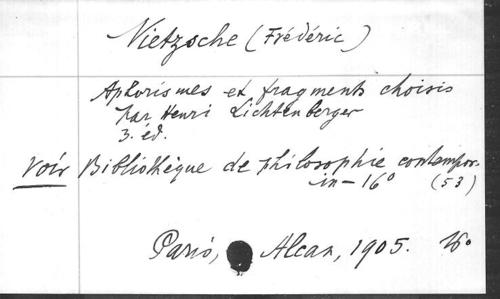 Nietzsche (Frédéric)
Aphorismes et fragments choisis
par Henri Lichtenberger
3. éd.
voir Bibliothèque de philosophie contempor.
in-16° (53)
Paris, Alcan, 1905. 16°